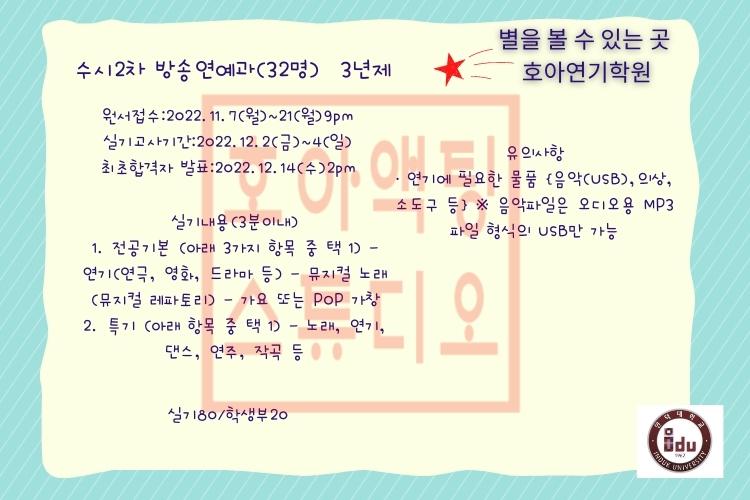 별을 볼 수 있는 곳
호아연기학원
수시2차 방송연예과(32명) 3년제
원서접수:2022.11.7(월)~21(월)9pm
실기고사기간:2022.12.2(금)~4(일)
최초합격자 발표:2022.12.14(수)2pm
실기내용(3분이내)
1. 전공기본 (아래 3가지 항목 중 택 1) -
연기(연극, 영화, 드라마 등) - 뮤지컬 노래
(뮤지컬 레파토리) - 가요 또는 POP 가창
2. 특기 (아래 항목 중 택 1) - 노래, 연기,
댄스, 연주, 작곡 등
실기80/학생부20
유의사항
· 연기에 필요한 물품 {음악(USB),의상,
소도구 등} ※ 음악파일은 오디오용 MP3
파일 형식의 USB만 가능
호아액팅
스튜디오
인덕대학교
idu
INDUK UNIVERSITY